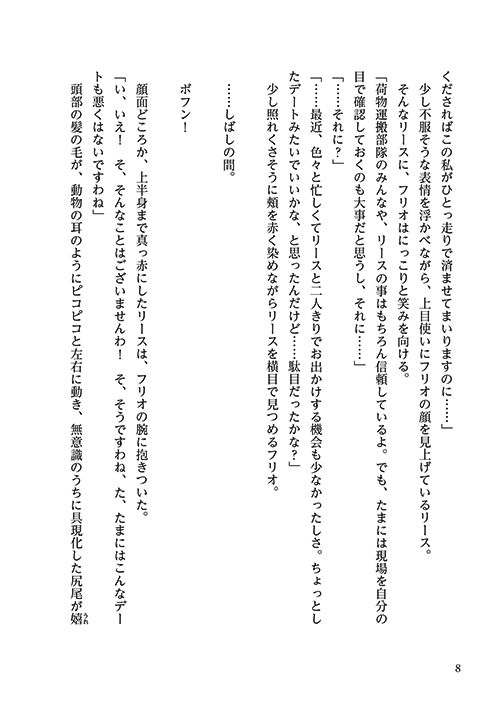 くださればこの私がひとっ走りで済ませてまいりますのに……」
少し不服そうな表情を浮かべながら、上目使いにフリオの顔を見上げているリース。
そんなリースに、フリオはにっこりと笑みを向ける。
「荷物運搬部隊のみんなや、リースの事はもちろん信頼しているよ。でも、たまには現場を自分の
目で確認しておくのも大事だと思うし、それに……」
「……それに？」
「……最近、色々と忙しくてリースと二人きりでお出かけする機会も少なかったしさ。ちょっとし
たデートみたいでいいかな、と思ったんだけど……駄目だったかな？」
少し照れくさそうに頬を赤く染めながらリースを横目で見つめるフリオ。
……しばしの間。
ボフン！
顔面どころか、上半身まで真っ赤にしたリースは、フリオの腕に抱きついた。
「い、いえ！　そ、そんなことはございませんわ！　そ、そうですわね、た、たまにはこんなデー
トも悪くはないですわね」
頭部の髪の毛が、動物の耳のようにピコピコと左右に動き、無意識のうちに具現化した尻尾が嬉
うれ
8